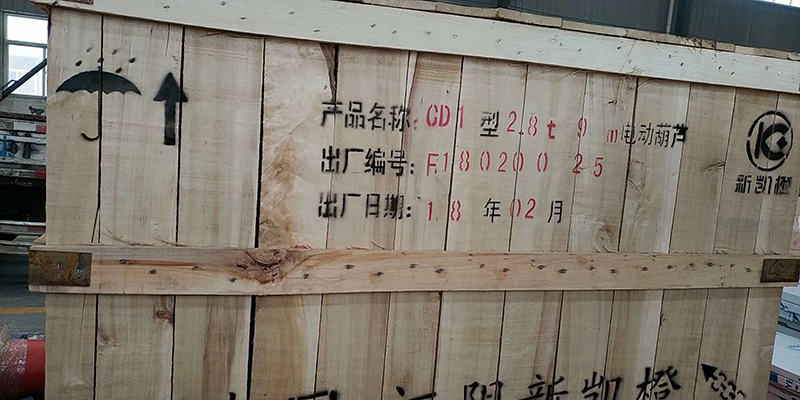 产品名称：CD1型2.8t 9m电动葫芦
出厂编号：F180200 25
出厂日期：18年02月
新凯橙
阳新凯橙